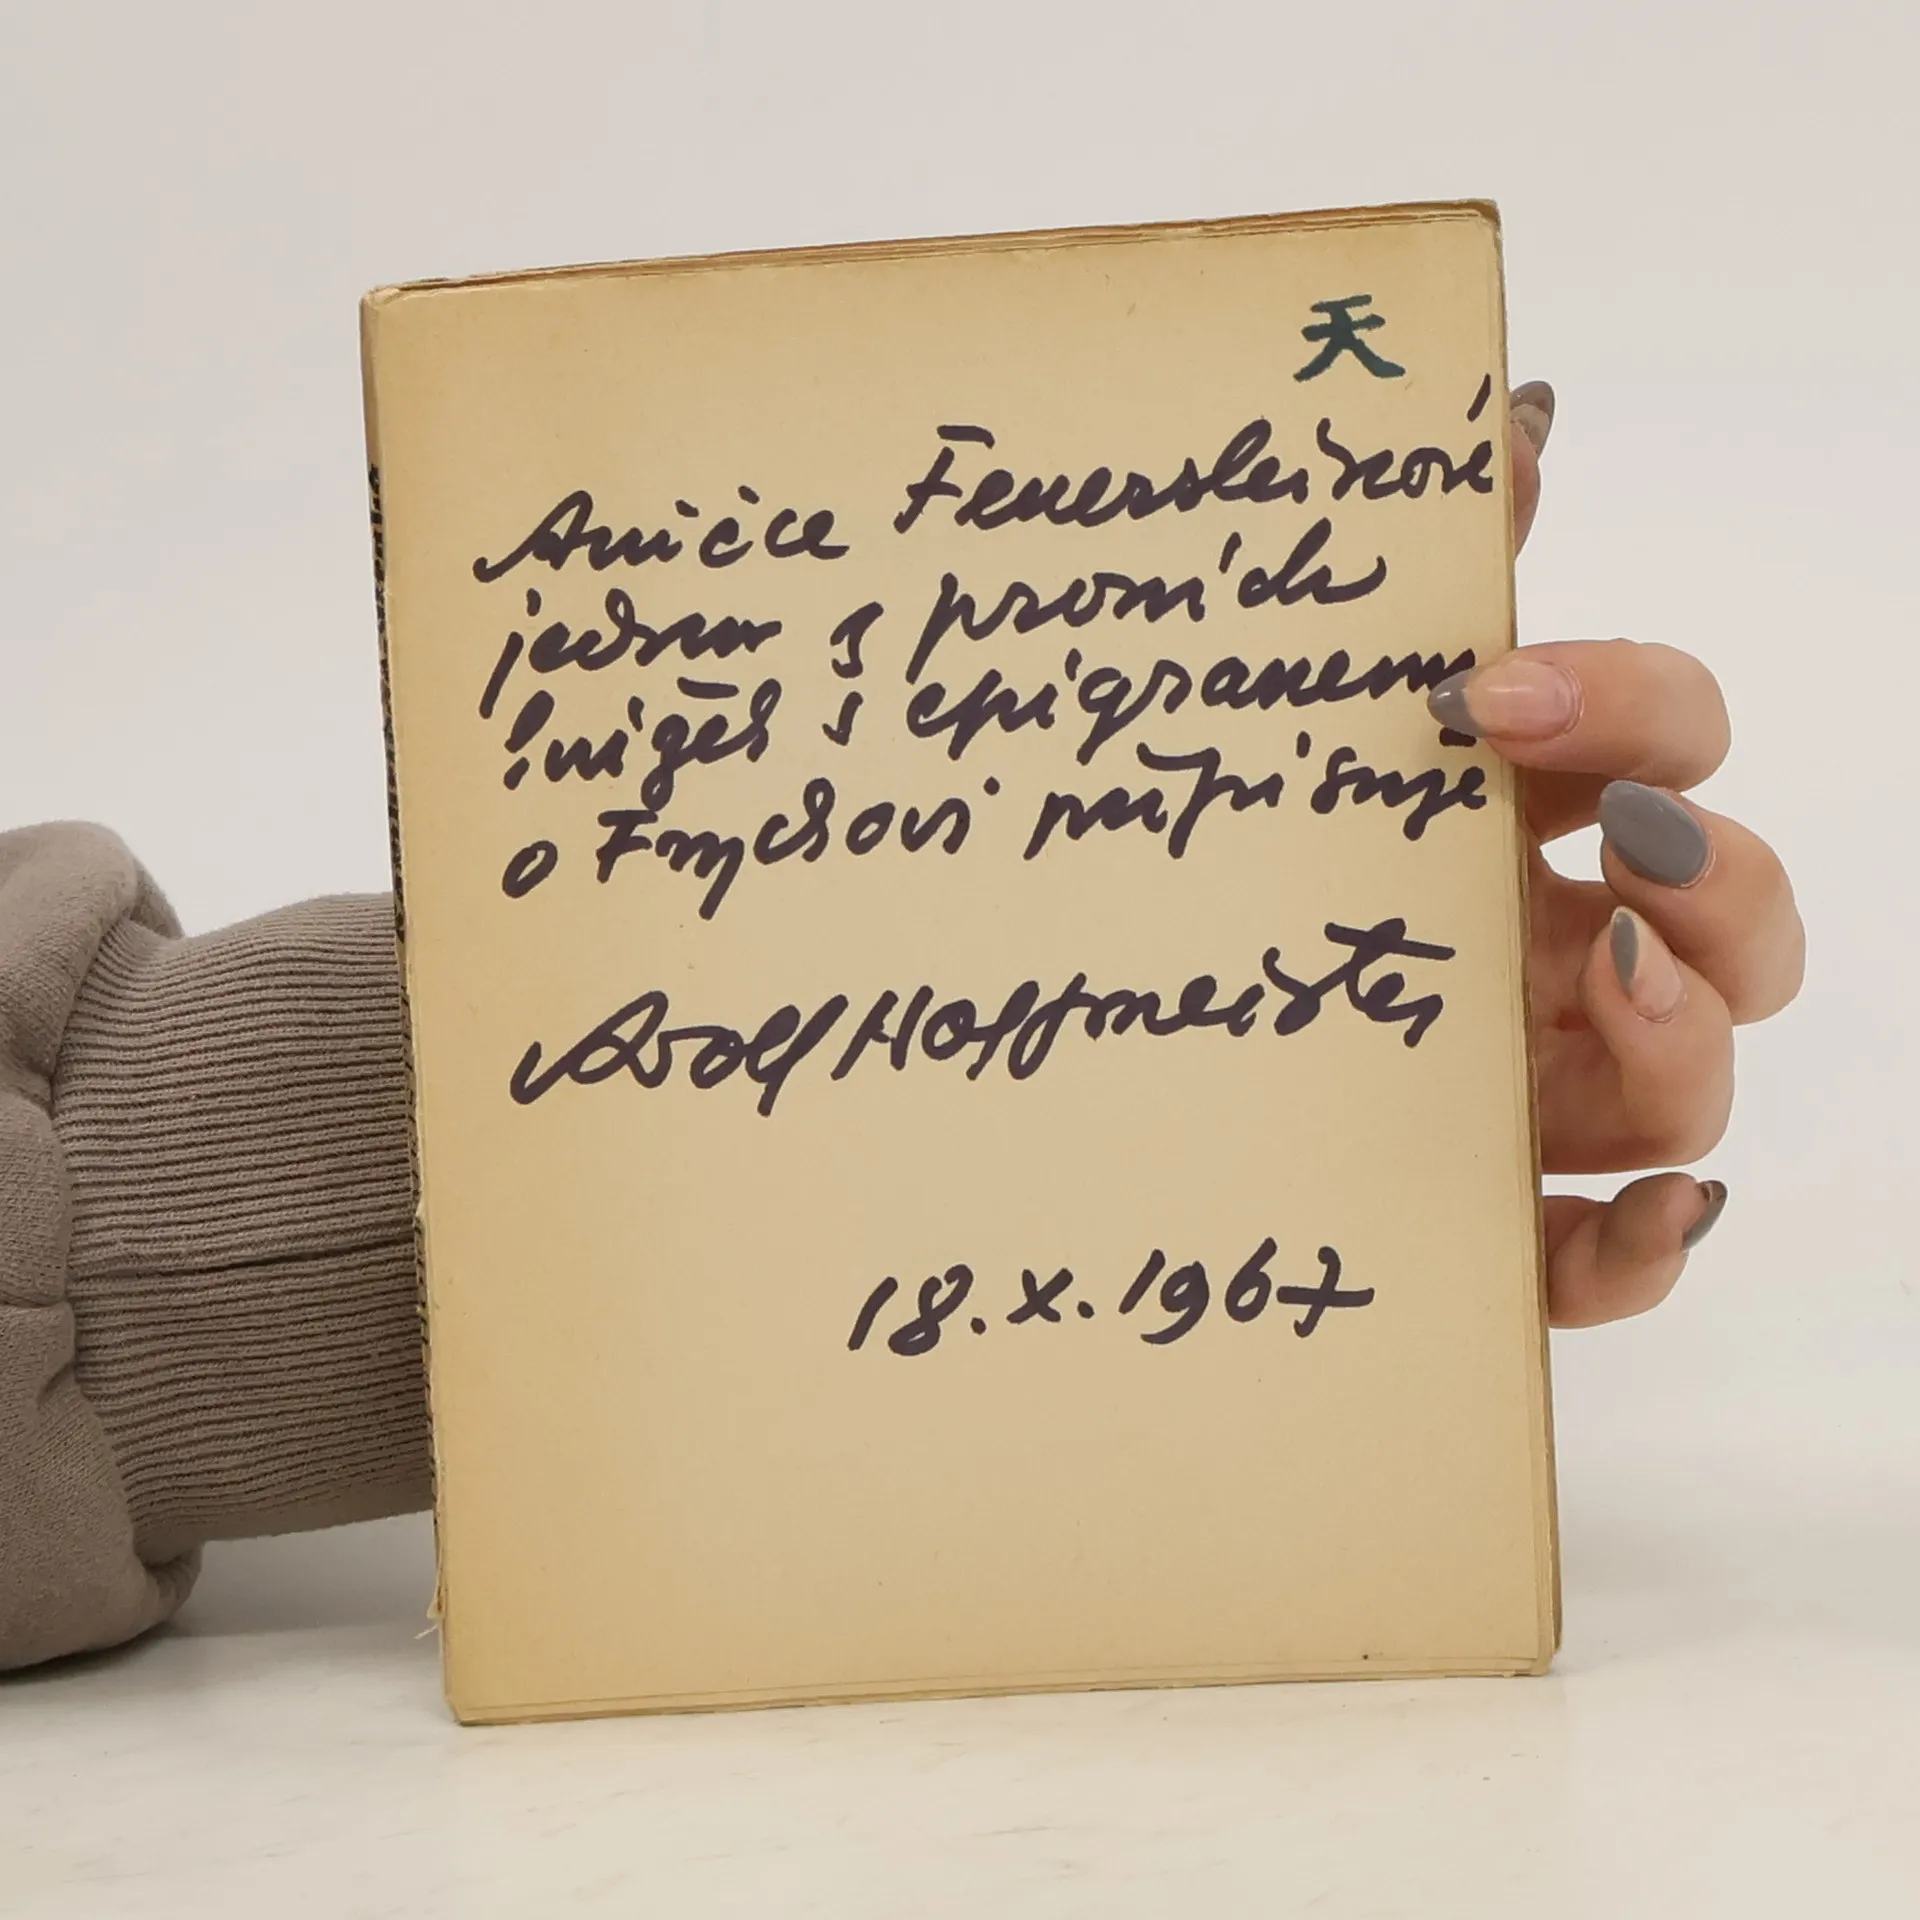 天
Aničce Feuersteinové
jednu z prvních
knížek s epigramem
o Frychovi připisuje
Adolf Hoffmeister
18. X. 1967